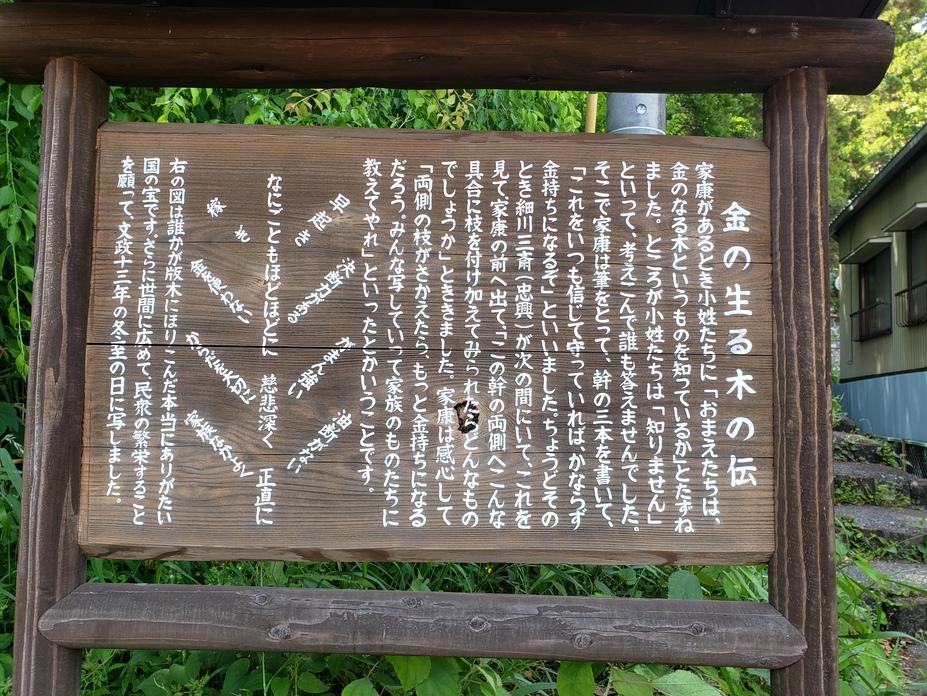 金の生る木の伝
家康があるとき小姓たちに「おまえたちは、
金のなる木というものを知っているか」とたずね
ました。ところが小姓たちは「知りません」
といって、考えこんで誰も答えませんでした。
そこで家康は筆をとって、幹の三本を書いて、
「これをいつも信じて守っていれば、かならず
金持ちになるぞ」といいました。ちょうどその
とき細川三斎（忠興）が次の間にいて、これを
見て、家康の前へ出て、「この幹の両側へこんな
具合に枝を付け加えてみられ どんなもの
でしょうか」とききました。家康は感心して
「両側の枝がさかえたら、もっと金持ちになる
だろう。みんな写していって家族のものたちに
教えてやれ」といったとかいうことです。
早起き
決断力がある
がまん強い
油断がない
なにごともほどほどに 慈悲深く 正直に
稼ぎ
金を使わない
からだを大切に
家族なかよく
右の図は誰かが版木にほりこんだ本当にありがたい
国の宝です。さらに世間に広めて、民衆の繁栄すること
を願って、文政十三年の冬至の日に写しました。